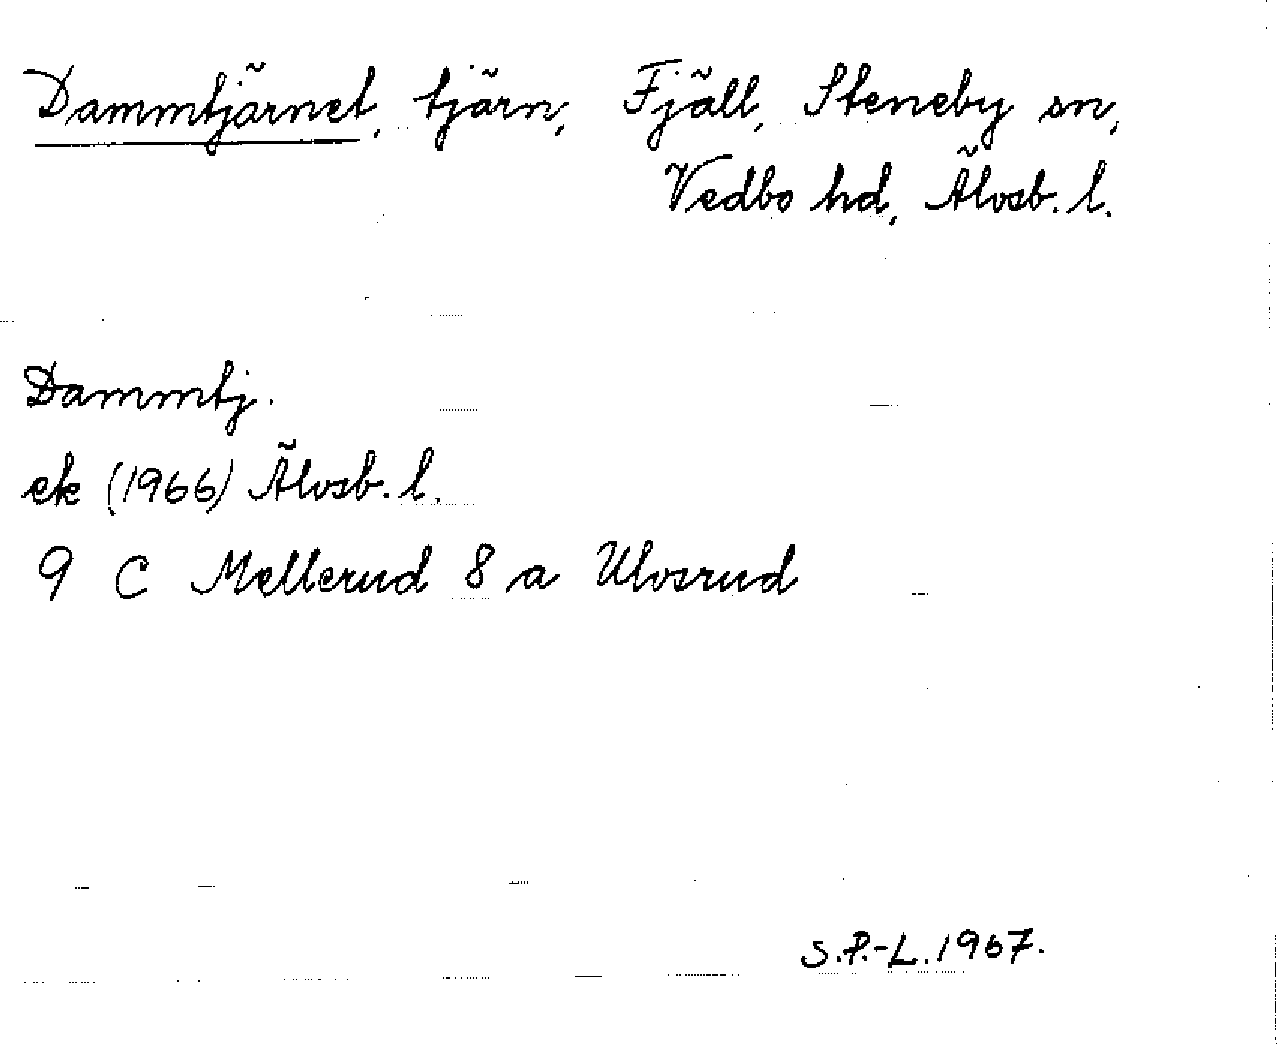 Dammtjärnet, tjärn, Fjäll, Steneby sn,
Vedbo hd, Älvsb. l.
Dammtj.
ek (1966) Älvsb. l.
9 C Mellerud 8 a Ulvsrud
S.P.-L. 1967.